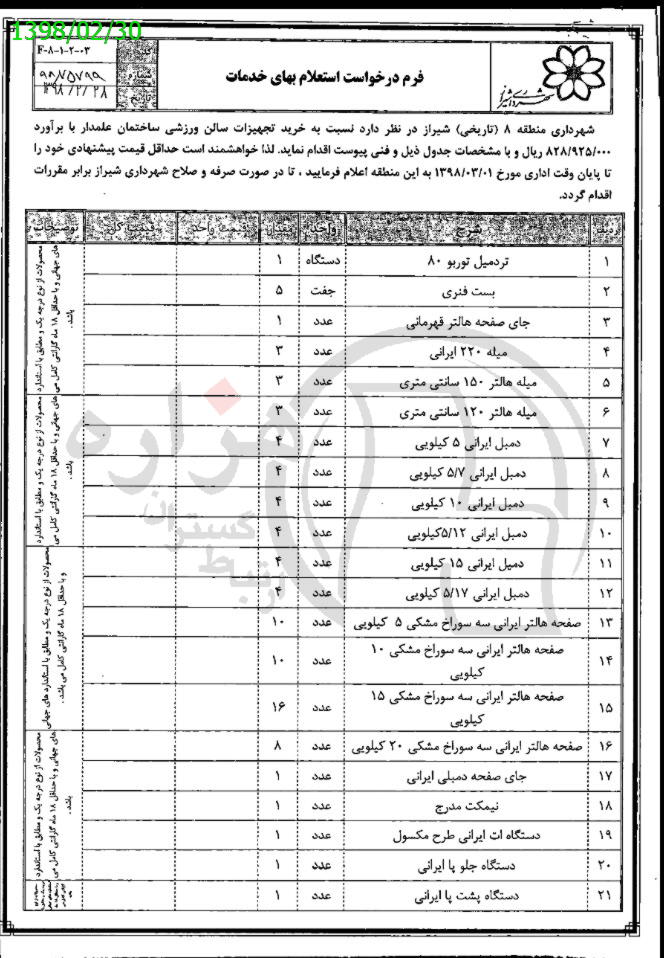 1398/02/30
F-۸-۱-۲-۰۳
کد
شماره
تاریخ
۱۳۹۸/۲/۲۸
فرم درخواست استعلام بهای خدمات
شهرداری شیراز
شهرداری منطقه ۸ (تاریخی) شیراز در نظر دارد نسبت به خرید تجهیزات سالن ورزشی ساختمان علمدار با برآورد
۸۲۸/۹۲۵/۰۰۰ ریال و با مشخصات جدول ذیل و فنی پیوست اقدام نماید. لذا خواهشمند است حداقل قیمت پیشنهادی خود را
تا پایان وقت اداری مورخ ۱۳۹۸/۰۳/۰۱ به این منطقه اعلام فرمایید ، تا در صورت صرفه و صلاح شهرداری شیراز برابر مقررات
اقدام گردد.
ردیف شرح واحد مقدار قیمت واحد قیمت کل توضیحات
۱ تردمیل توربو ۸۰ دستگاه ۱
۲ بست فنری جفت ۵
۳ جای صفحه هالتر قهرمانی عدد ۱
۴ میله ۲۲۰ ایرانی عدد ۳
۵ میله هالتر ۱۵۰ سانتی متری عدد ۳
۶ میله هالتر ۱۲۰ سانتی متری عدد ۳
۷ دمبل ایرانی ۵ کیلویی عدد ۴
۸ دمبل ایرانی ۵/۷ کیلویی عدد ۴
۹ دمبل ایرانی ۱۰ کیلویی عدد ۴
۱۰ دمبل ایرانی ۵/۱۲کیلویی عدد ۴
۱۱ دمبل ایرانی ۱۵ کیلویی عدد ۴
۱۲ دمبل ایرانی ۵/۱۷ کیلویی عدد ۴
۱۳ صفحه هالتر ایرانی سه سوراخ مشکی ۵ کیلویی عدد ۱۰
۱۴ صفحه هالتر ایرانی سه سوراخ مشکی ۱۰
کیلویی عدد ۱۰
۱۵ صفحه هالتر ایرانی سه سوراخ مشکی ۱۵
کیلویی عدد ۱۶
۱۶ صفحه هالتر ایرانی سه سوراخ مشکی ۲۰ کیلویی عدد ۸
۱۷ جای صفحه دمبلی ایرانی عدد ۱
۱۸ نیمکت مدرج عدد ۱
۱۹ دستگاه ات ایرانی طرح مکسول عدد ۱
۲۰ دستگاه جلو پا ایرانی عدد ۱
۲۱ دستگاه پشت پا ایرانی عدد ۱
محصولات از نوع درجه یک و مطابق با استاندارد
های جهانی و با حداقل ۱۸ ماه گارانتی کامل می
باشد.
محصولات از نوع درجه یک و مطابق با استاندارد
های جهانی و با حداقل ۱۸ ماه گارانتی کامل می
باشد.
محصولات از نوع درجه یک و مطابق با استاندارد های جهانی
و با حداقل ۱۸ ماه گارانتی کامل می باشد.
محصولات از نوع درجه یک و مطابق با استاندارد
های جهانی و با حداقل ۱۸ ماه گارانتی کامل می
باشد.
هزاره
گستران
ارتباط